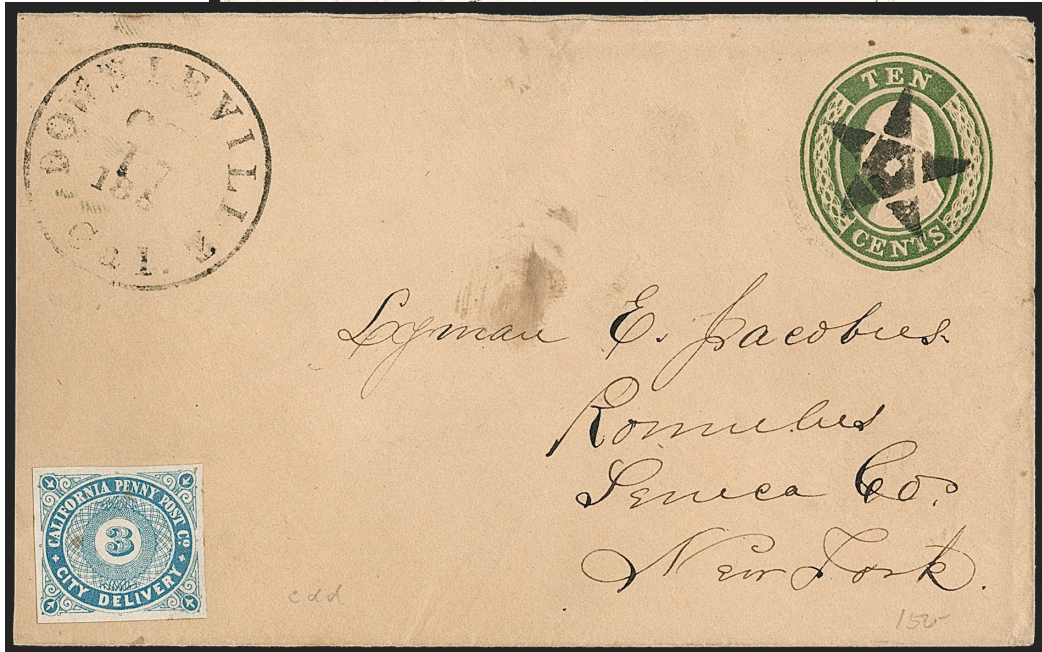 DOWNIEVILLE
CAL.
TEN
CENTS
Lyman E. Jacobus
Romulus
Seneca Co.
New York.
CALIFORNIA PENNY POST CO.
3
CITY DELIVERY
cdd
150-